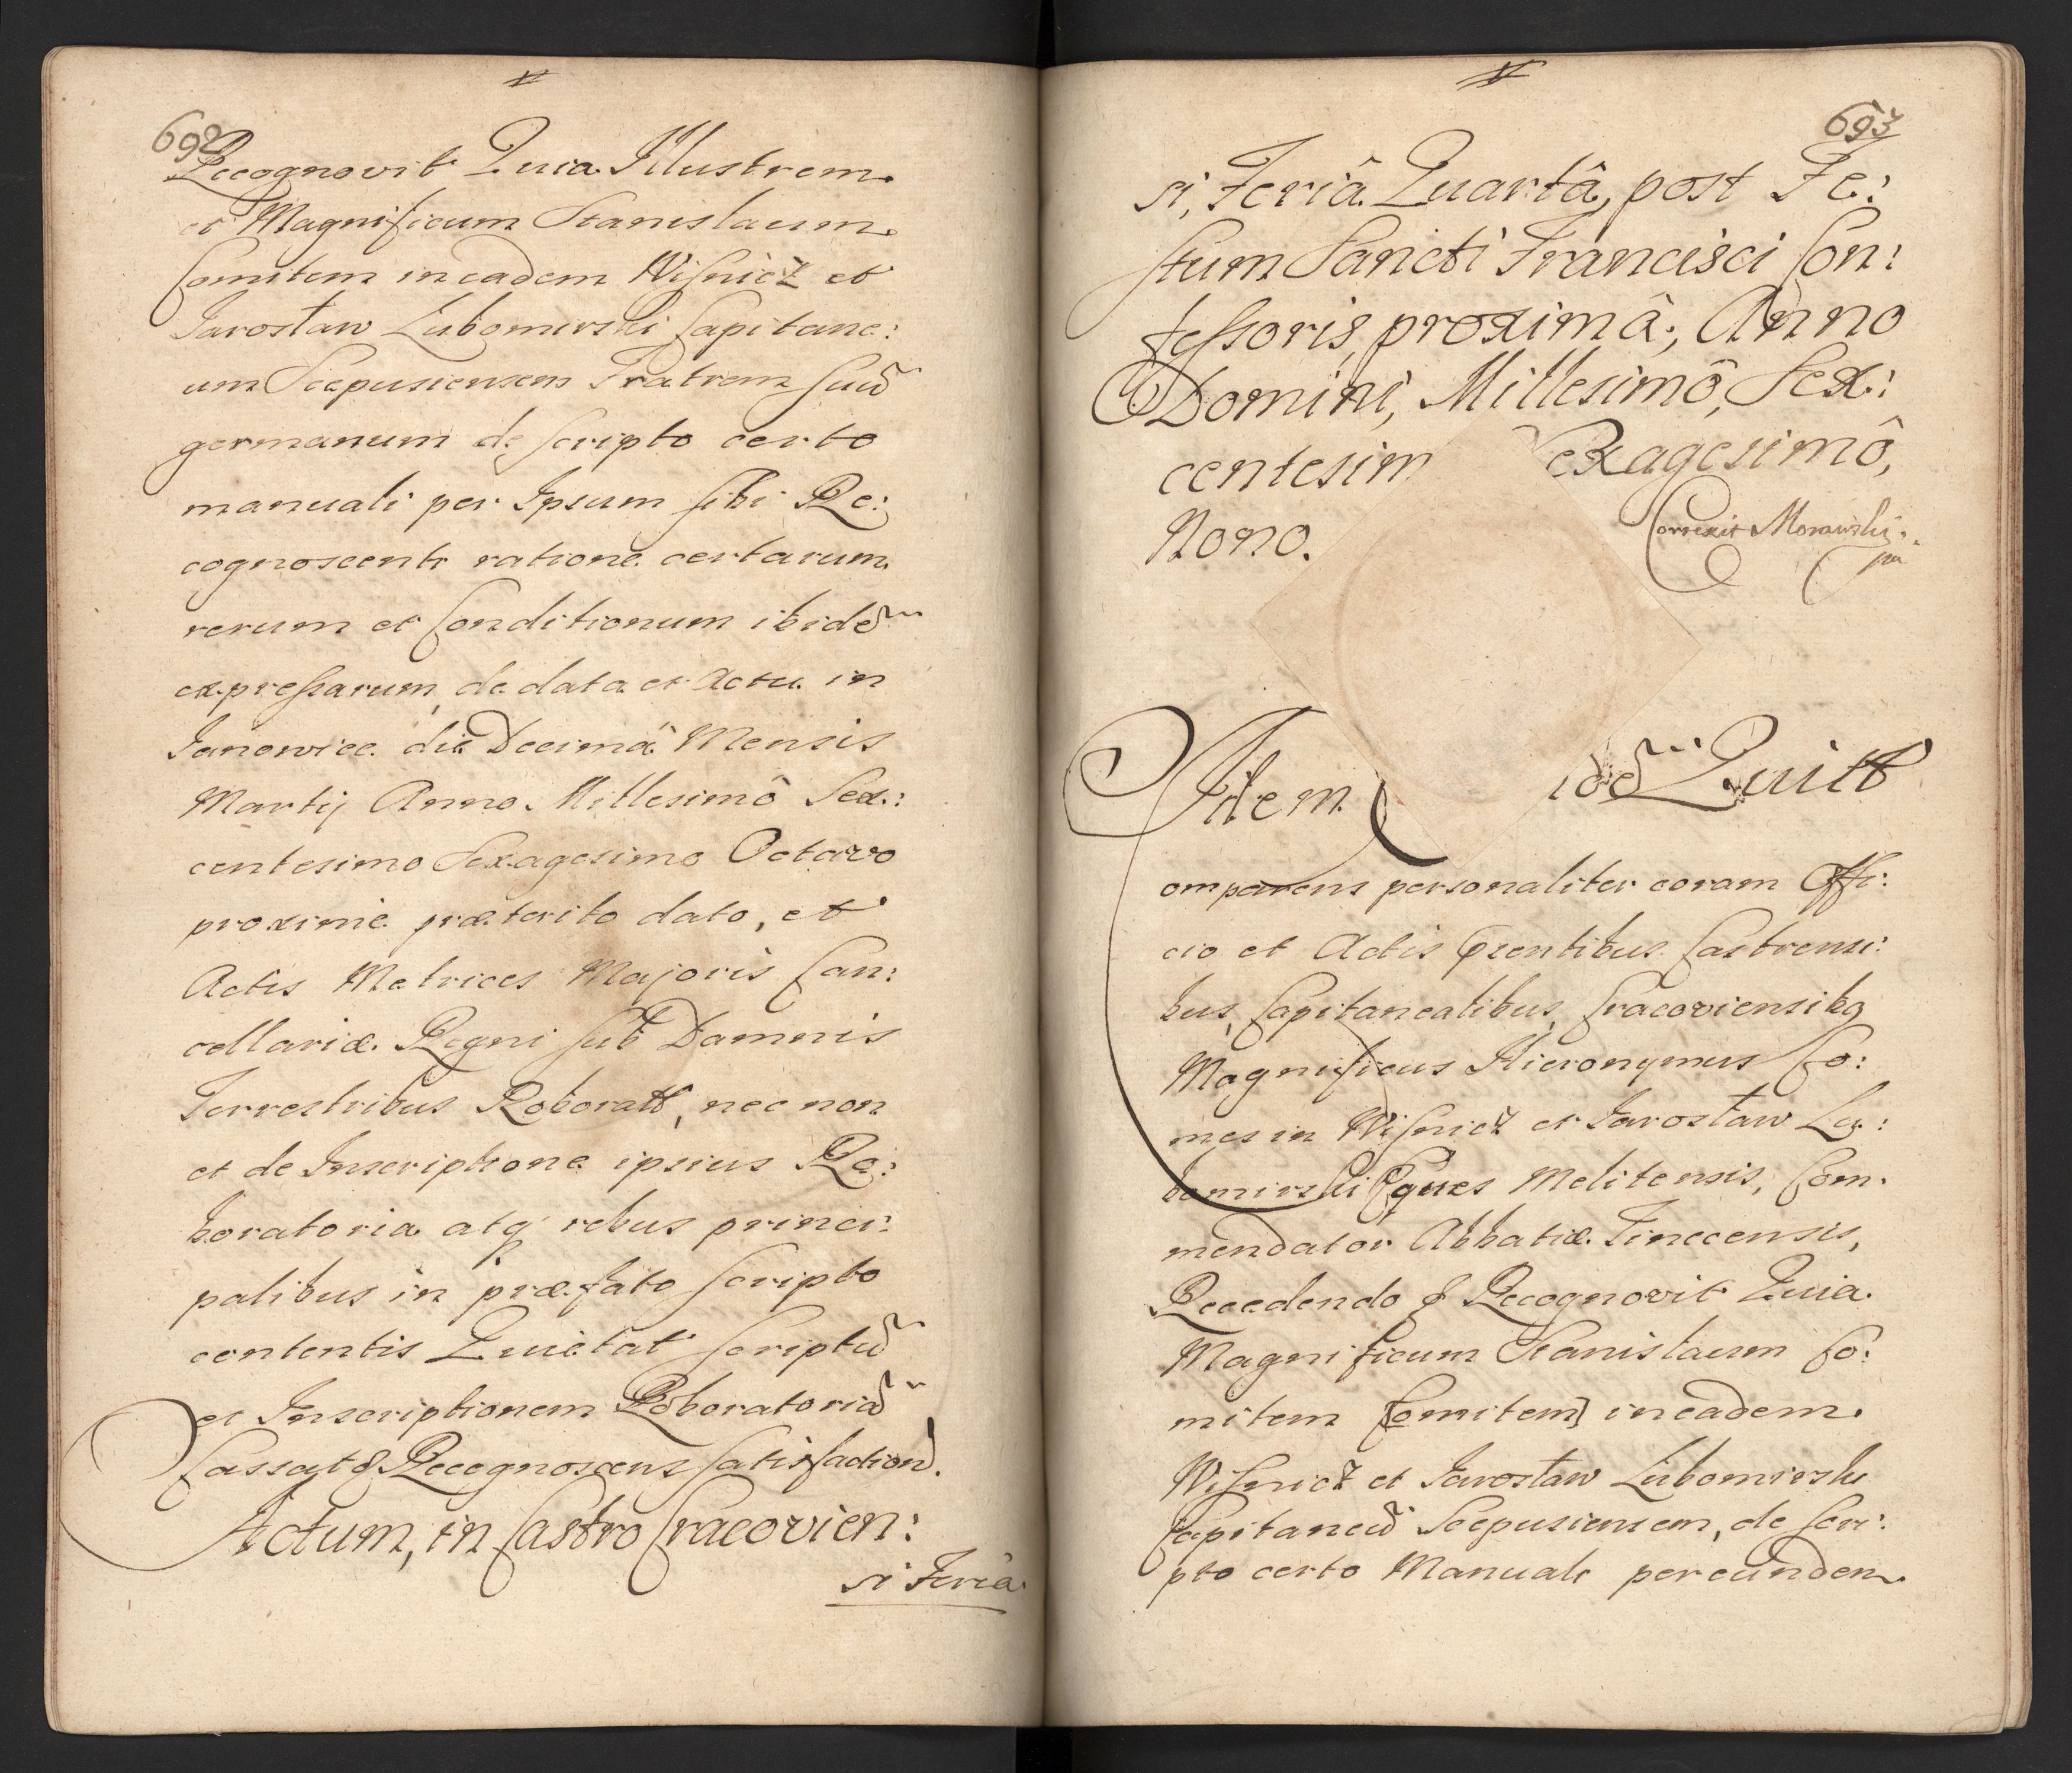 692
Recognovit Quia Illustrem
et Magnificum Stanislaum
Comitem in eadem Wisnicz et
Jarosław Lubomirski Capitane:
um Scepusiensem Fratrem suũ
germanum de scripto certo
manuali per Ipsum sibi Re:
cognoscenti ratione certarum
rerum et Conditionum ibidẽ
expressarum, de data et Actu in
Janowiec die Decimâ Mensis
Martij Anno Millesimô Sex:
centesimo Sexagesimo Octavo
proximè præterito dato, et
Actis Metrices Majoris Can:
cellariæ Regni sub Damnis
Terrestribus Roboratt, nec non
et de Inscriptione ipsius Ro:
boratoria atq rebus princi:
palibus in præfato scripto
contentis Quietat scriptũ
et Inscriptionem Roboratoriã
Cassat & Recognoscens satisfaction.
Actum, in Castro Cracovien:
si Feriâ
693
si, Feriâ Quartâ, post Fe:
stum Sancti Francisci Con:
fessoris, proximâ, Anno
Domini, Millesimô, Sex:
centesim exagesimô,
Nono.
Correxit Morawski
mp
Idem idẽ Quitt
Comparens personaliter coram Offi:
cio et Actis Pñntibus Castrensi:
bus, Capitanealibus, Cracoviensibq
Magnificus Hieronymus Co:
mes in Wisnicz et Jarosław Lu:
bomirski Eques Melitensis, Com:
mendator Abbatiæ Tinecensis,
Recedendo & Recognovit Quia
Magnificum Stanislaum Co:
mitem [Comitem] in eadem
Wisnicz et Jarosław Lubomirski
Capitaneũ Scepusiensem, de scri:
pto certo Manuali per eundem